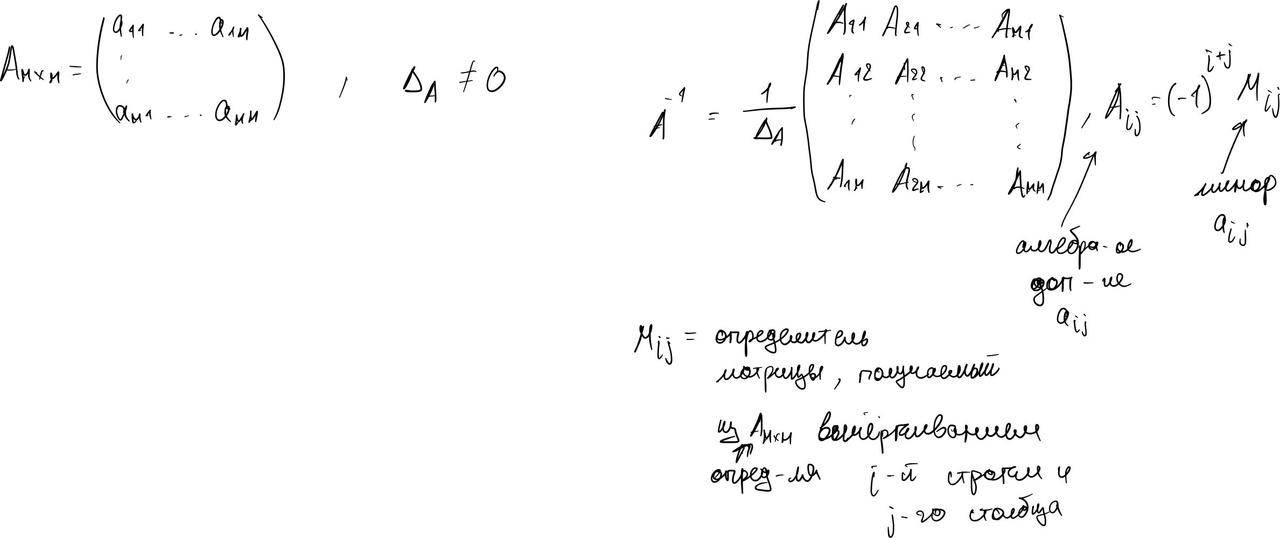 Aₙₓₙ = ( a₁₁ ... a₁ₙ
⋮
aₙ₁ ... aₙₙ ) , Δ_A ≠ 0
A⁻¹ = 1/Δ_A ( A₁₁ A₂₁ ... Aₙ₁
A₁₂ A₂₂ ... Aₙ₂
⋮ ⋮ ⋮
A₁ₙ A₂ₙ ... Aₙₙ ) , A_ij = (-1)^(i+j) M_ij
минор
a_ij
алгебра-ое
доп-ие
a_ij
M_ij = определитель
матрицы, получаемый
из Aₙₓₙ вычёркиванием
опред-ля i-й строки и
j-го столбца